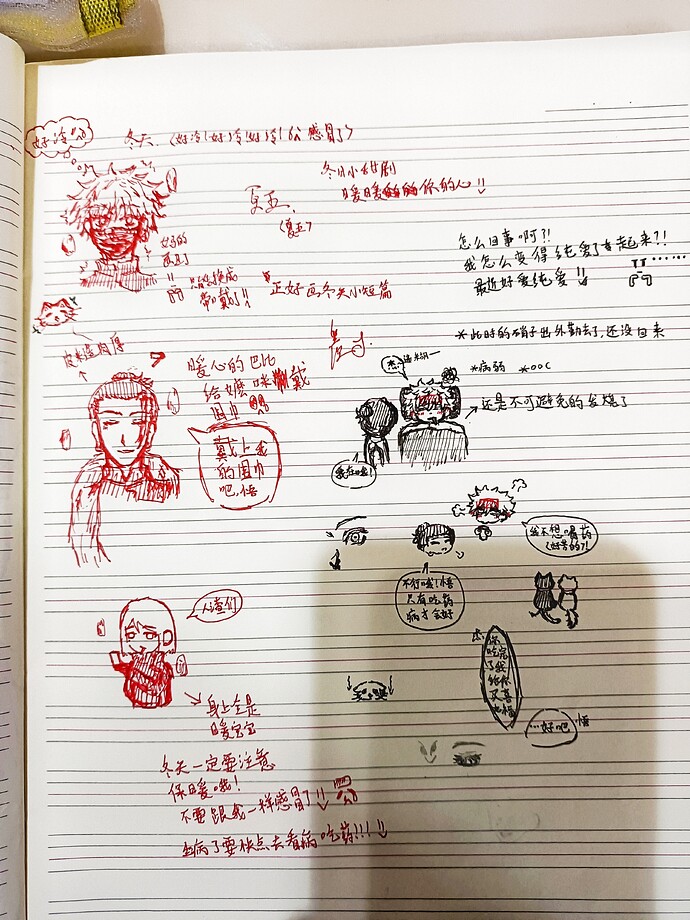 好冷
冬天(好冷!好冷!好冷!公感冒了)
冬日小甜剧
暖暖的你的心!!
夏五
(夏五)
怎么回事啊?!
我怎么变得纯爱了看起来?!
最近好爱纯爱!!
好的
常戴了!!
正好画冬天小短篇
皮料差内厚
暖心的巴比
给嬷咪戴
围巾
戴上我
的围巾
吧,悟
*此时的硝子出外勤去了,还没回来
*病弱 *ooc
还是不可避免的发烧了
杰
我在哦!
我不想喝药
(好苦的)!
不行哦!悟
只有吃药
病才会好
你吃完了我给你
…好吧
悟
人渣们
身上全是
暖宝宝
冬天一定要注意
保暖哦!
不要跟我一样感冒了!!
生病了要快点去看病吃药!!!